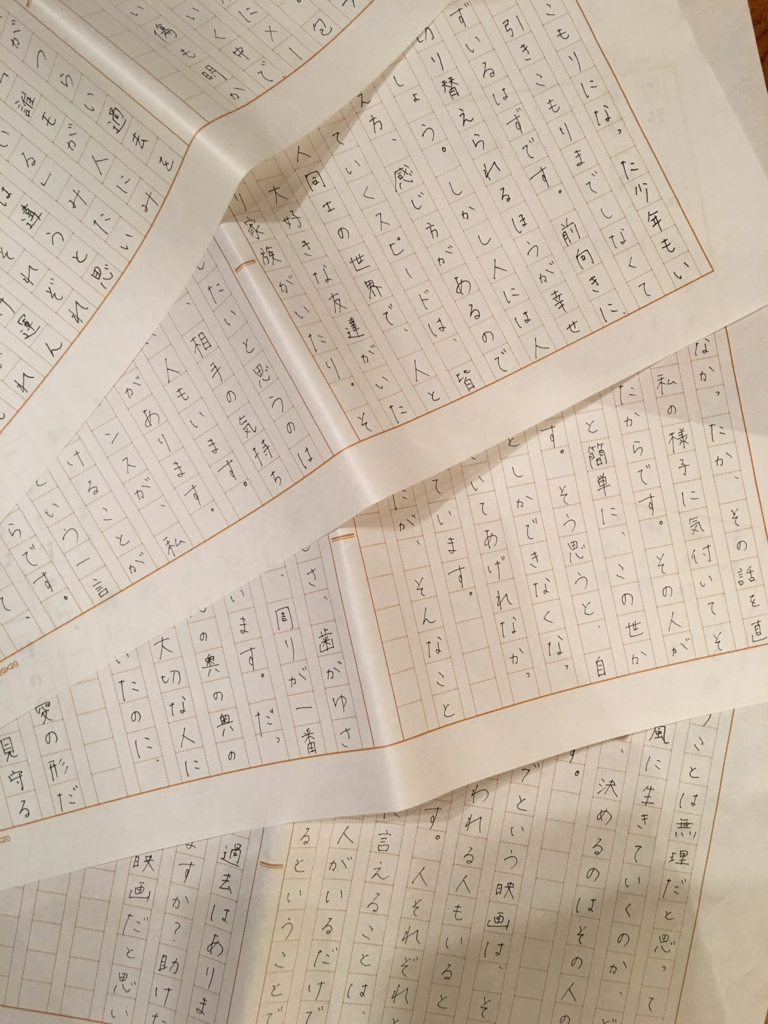 こもりになった少年もい
引きこもりまでしなくて
ずいるはずです。前向きに
切り替えられるほうが幸せ
しょう。しかし人には人
え方、感じ方があるので
ていくスピードは、人と
人同士の世界で、皆
大好きな友達がいた
り家族がいたり。そ
したいと思うのは
相手の気持ち
人もいます。
があります。
ンスが、私
けることが
という一言
らです。
過去を
つらい人にみ
がつらい
誰もが
いる」みたい
は違うと思
それぞれ
運
包
中で
傷も明か
なかったか、その話を直
私の様子に気付いてそ
たからです。その人が
と簡単に、この世か
す。そう思うと、自
としかできなくなっ
いてあげれなかっ
ています。
だが、そんなこと
さ、歯がゆさ
周りが一番
います。だっ
の奥の奥の
大切な人に
いたのに、
愛の形だ
見守る
ことは無理だと思って
風に生きていくのか、ど
決めるのはその人の
す。
ブという映画は、そ
われる人もいると
す。人それぞれと
に言えることは、
人がいるだけで
るということで
過去はありま
ますか？助けた
映画だと思い
20×20